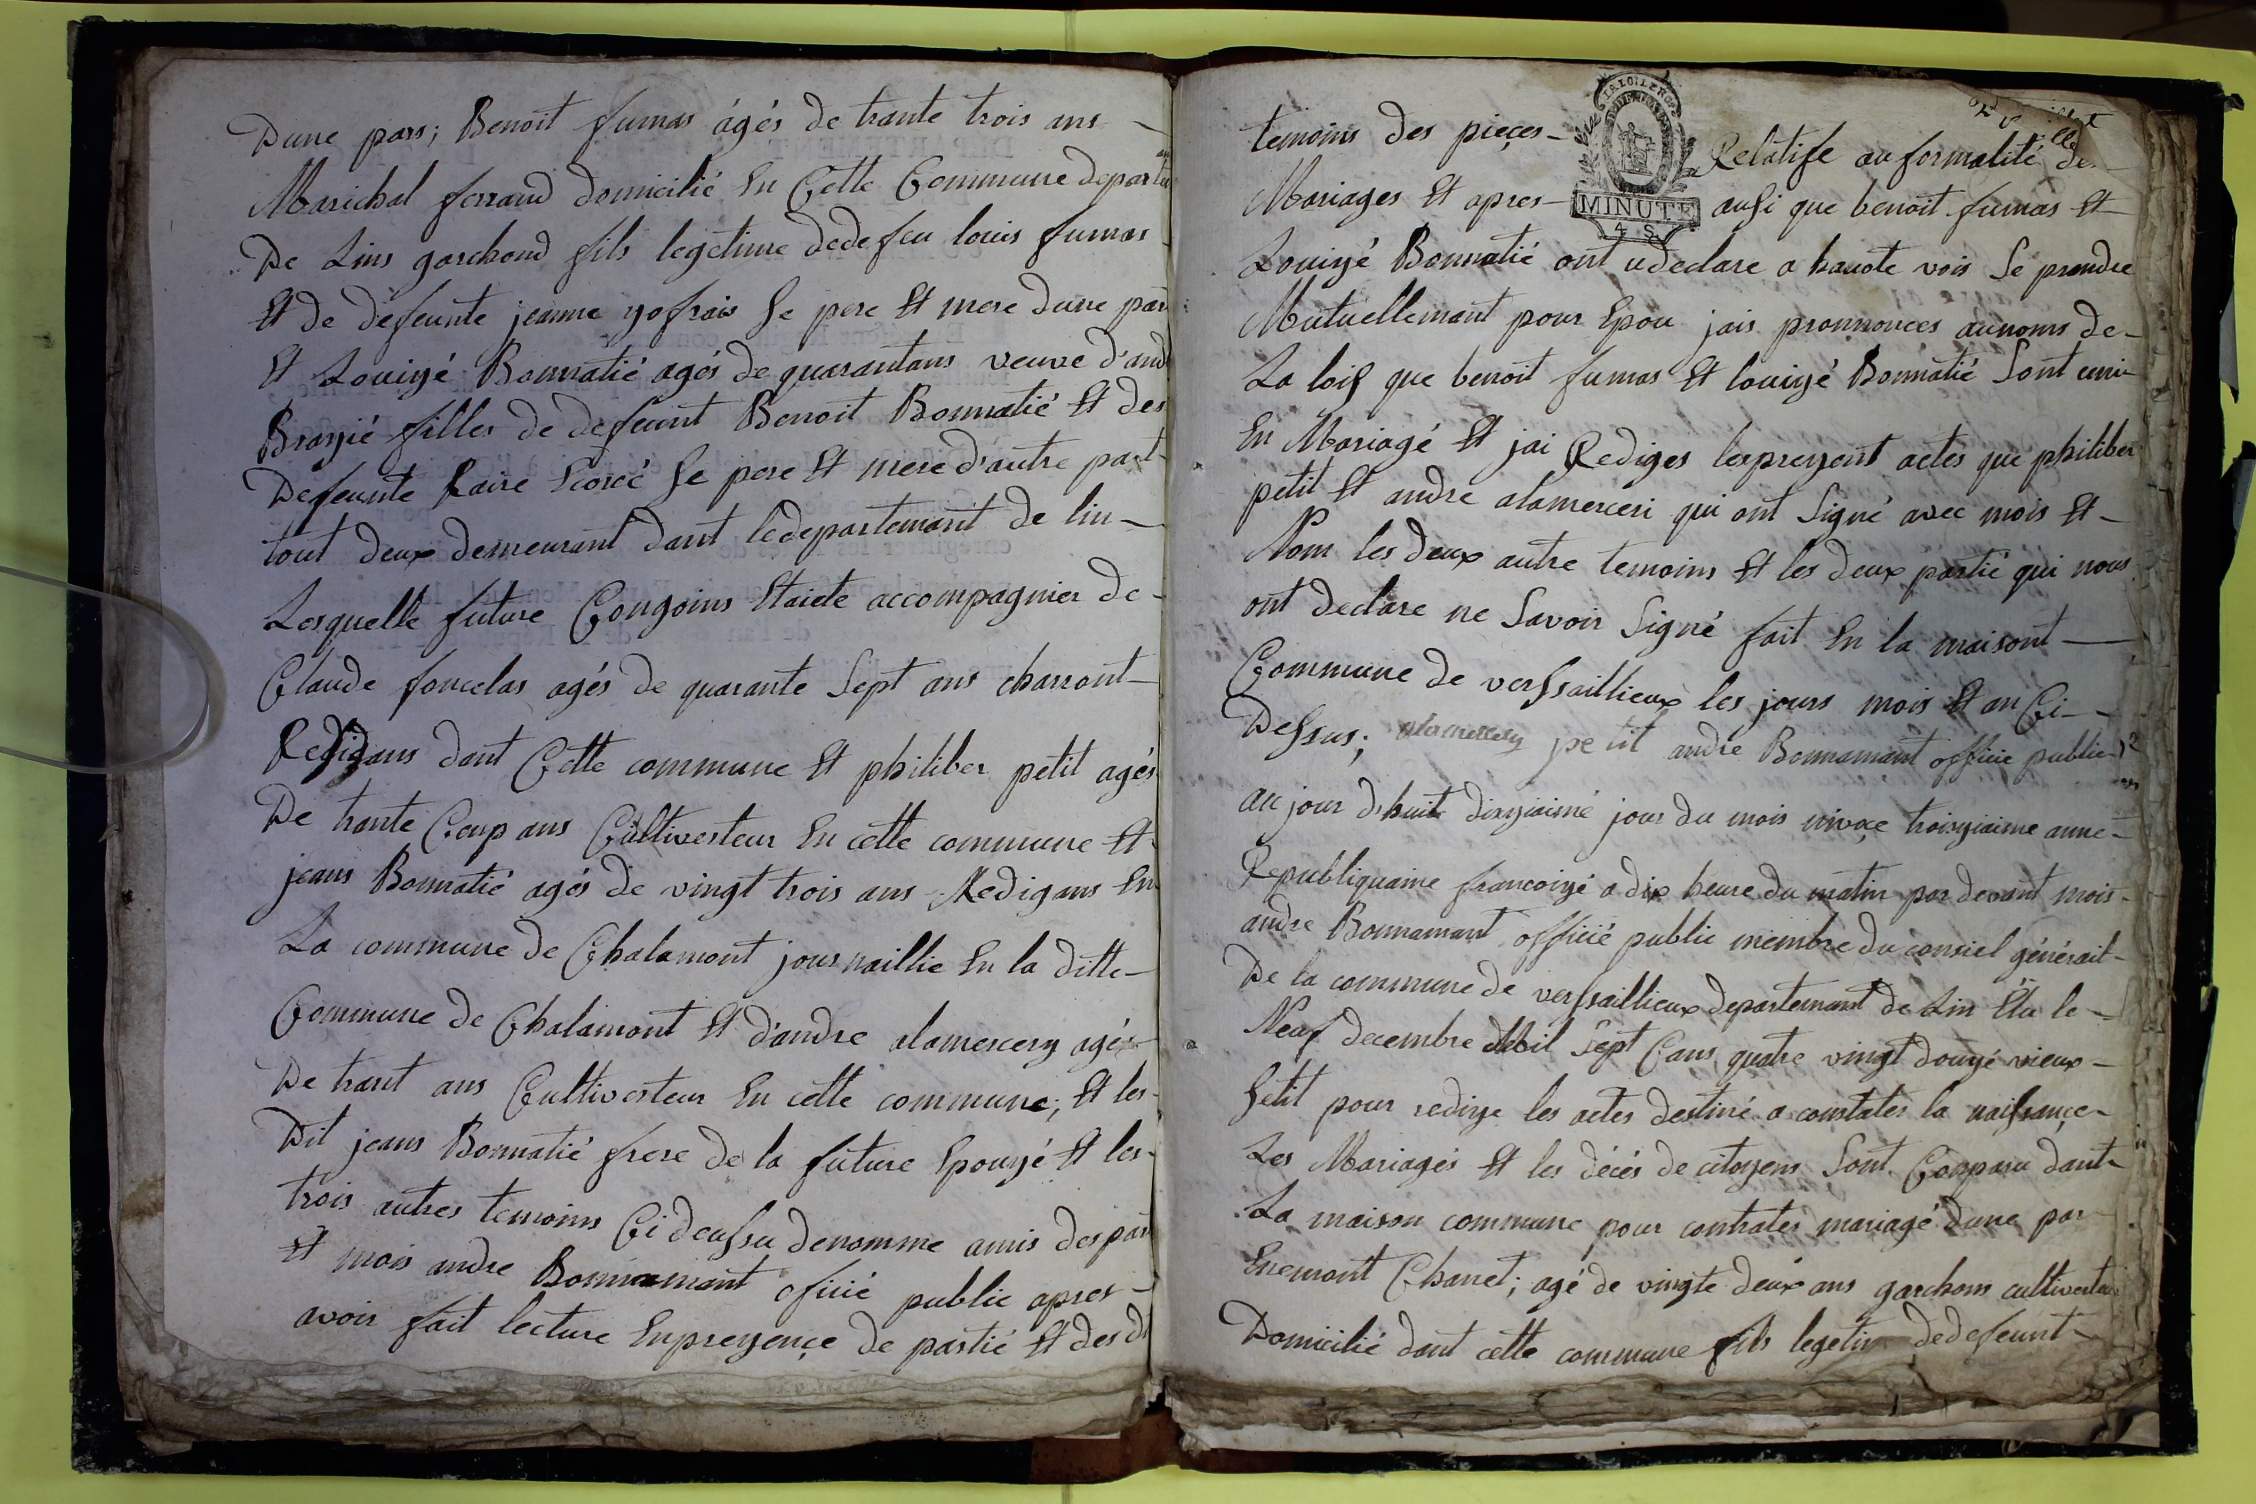 Dune pars; Benoit fumas ágés de trante trois ans
Marichal ferrand domicilié En Cette Commune departem
De Lins garchond fils legetime dedefeu louis fumas
Et de defeunte jeanne yofrais Se pere Et mere dune par
Et Louiyé Bonnatié agés de quarantans veuve d'and
Brayié filles de defeunt Benoit Bonnatié Et des
Defeunte Laire Scorcé Se pere Et mere d'autre part
tout deux demeurant dant ledepartemant de lin
Lesquelle future Congoins Etaiete accompagnier de
Claude foncelas agés de quarante Sept ans charront
Redigans dant Cette commune Et philiber petit agés
De trante Cenp ans Cultivesteur En cette commune Et
jeans Bonnatié agés de vingt trois ans Redigans En
La commune de Chalamont journaillie En la ditte
Commune de Chalamont Et d'andre alamercery agés
De trant ans Cultivesteur En cette commune; Et les
Dit jeans Bonnatié frere de la future Epouyé Et les
trois autres temoins Ci deussu denomme amis des par
Et mois andre Bonnamant oficié public apres
avoir fait lecture Enpreyençe de partié Et des d
temoins des pieçes Relatife au formalité de
MINUTE
4 S.
Mariages Et apres ausi que benoit fumas Et
Louiyé Bonnatié ont udeclare a hauote vois Se prendre
Mutuellemant pour Epou jais pronnonces aunoms de
La lois que benoit fumas Et louiyé Bonnatié Sont euni
En Mariagé Et jai Rediges lespreyent actes que philiber
petit Et andre alamerceri qui ont Signé avec mois Et
Nom les deux autre temoins Et les deux partié qui nous
ont declare ne Savoir Signé fait En la maisont
Commune de verssaillieux les jours mois Et an Ci
Dessus; alamercery petit andre Bonnamant officie public
au jour dhuit dixyiaimé jour du mois nivoçe troisyiaime anne
Republiquaine françoiyé a dix heure du matin par devant mois
andre Bonnamant officié public membre du consiel générait
De la commune de verssaillieux departemant de Lin Elu le
Neuf decembre Mil Sept Cans quatre vingt douyé vieux
Setit pour rediye les actes destiné a constates la naissançe
Les Mariagés Et les décés de citoyens Sont Conparu dant
La maison commune pour contrates mariagé dune par
Enemont Chanet; agé de vingte deux ans garchons cultivesteur
Domicilié dant cette commune fils legetim dedefeunt